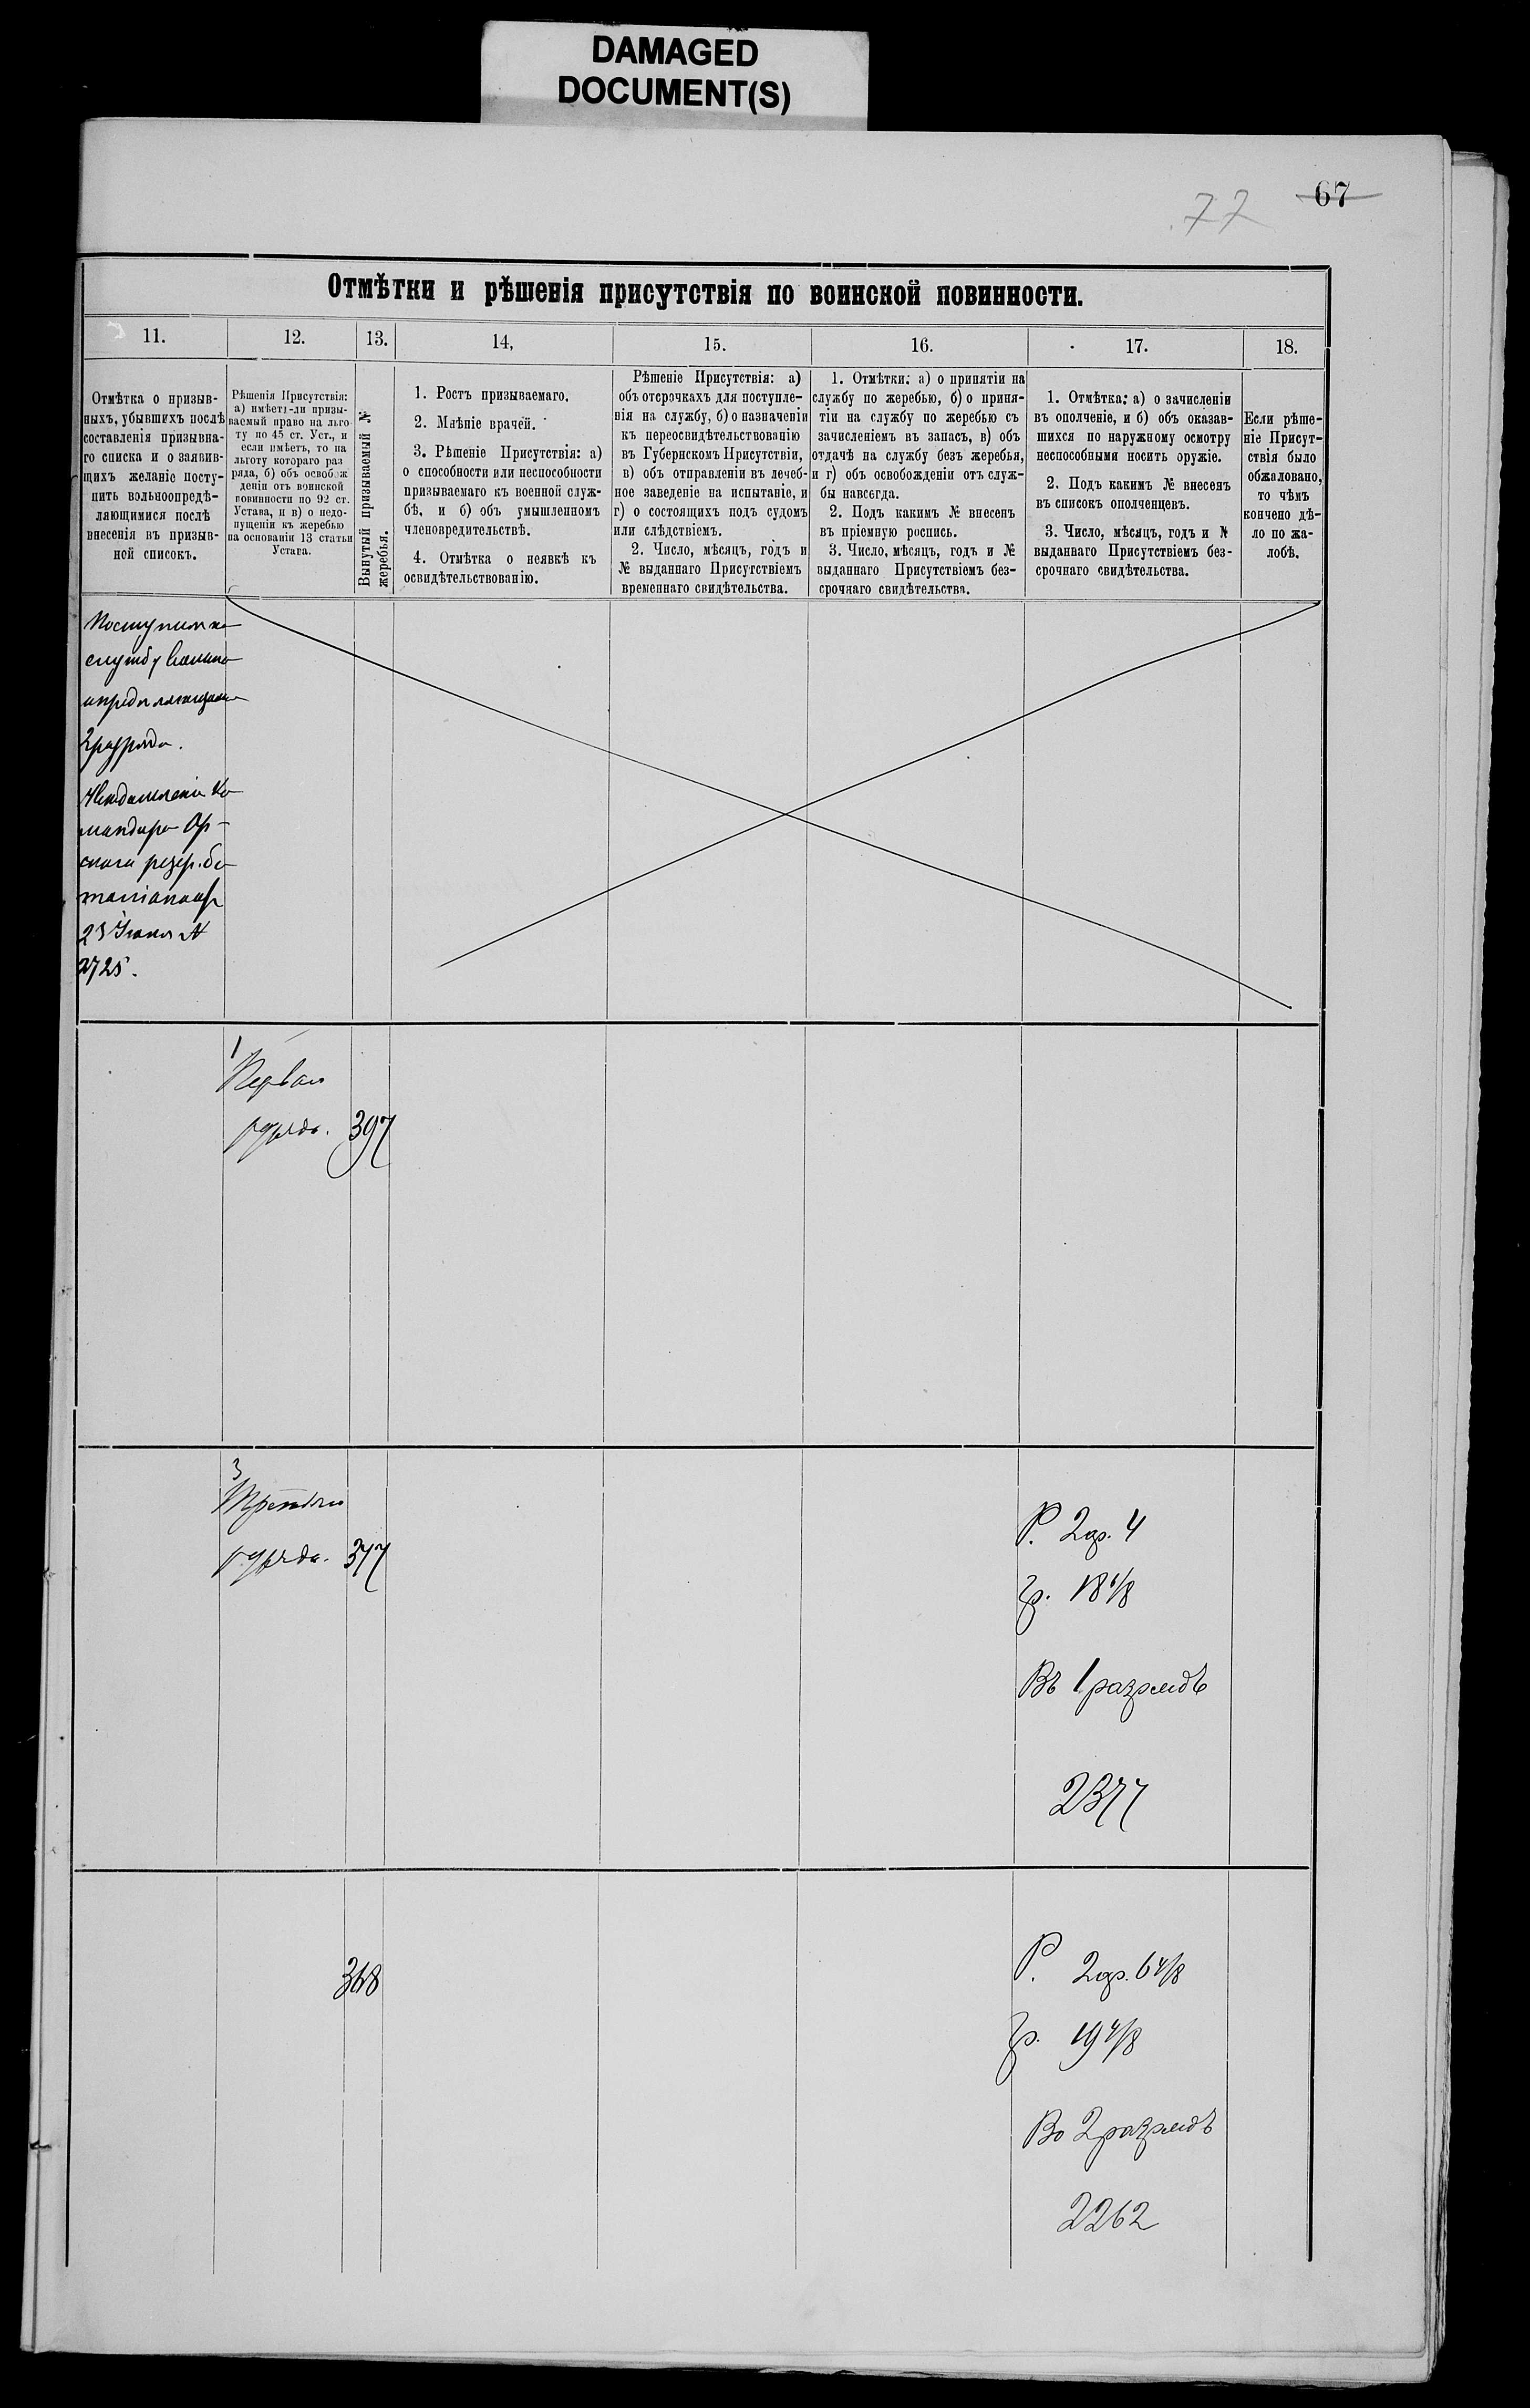 DAMAGED
DOCUMENT(S)
77 67
Отмѣтки и рѣшенія присутствія по воинской повинности.
11. 12. 13. 14, 15. 16. 17. 18.
Отмѣтка о призыв-
ныхъ, убывшихъ послѣ
составленія призывна-
го списка и о заявив-
щихъ желаніе посту-
пить вольноопредѣ-
ляющимися послѣ
внесенія въ призыв-
ной списокъ.
Рѣшенія Присутствія:
а) имѣетъ-ли призы-
ваемый право на льго
ту по 45 ст. Уст., и
если имѣетъ, то на
льготу котораго раз
ряда, б) объ освобож
деніи отъ воинской
повинности по 92 ст.
Устава, и в) о недо-
пущеніи къ жеребью
на основаніи 13 статьи
Устава.
Вынутый призываемый №
жеребья.
1. Ростъ призываемаго.
2. Мнѣніе врачей.
3. Рѣшеніе Присутствія: а)
о способности или неспособности
призываемаго къ военной служ-
бѣ, и б) объ умышленномъ
членовредительствѣ.
4. Отмѣтка о неявкѣ къ
освидѣтельствованію.
Рѣшеніе Присутствія: а)
объ отсрочкахъ для поступле-
нія на службу, б) о назначеніи
къ переосвидѣтельствованію
въ Губернскомъ Присутствіи,
в) объ отправленіи въ лечеб-
ное заведеніе на испытаніе, и
г) о состоящихъ подъ судомъ
или слѣдствіемъ.
2. Число, мѣсяцъ, годъ и
№ выданнаго Присутствіемъ
временнаго свидѣтельства.
1. Отмѣтки: а) о принятіи на
службу по жеребью, б) о приня-
тіи на службу по жеребью съ
зачисленіемъ въ запасъ, в) объ
отдачѣ на службу безъ жеребья,
и г) объ освобожденіи отъ служ-
бы навсегда.
2. Подъ какимъ № внесенъ
въ пріемную роспись.
3. Число, мѣсяцъ, годъ и №
выданнаго Присутствіемъ без-
срочнаго свидѣтельства.
1. Отмѣтка: а) о зачисленіи
въ ополченіе, и б) объ оказав-
шихся по наружному осмотру
неспособными носить оружіе.
2. Подъ какимъ № внесенъ
въ списокъ ополченцевъ.
3. Число, мѣсяцъ, годъ и №
выданнаго Присутствіемъ без-
срочнаго свидѣтельства.
Если рѣше-
ніе Присут-
ствія было
обжаловано,
то чѣмъ
кончено дѣ-
ло по жа-
лобѣ.
Поступилъ на
службу вольно
опредѣляющимся
2 разряда.
Увѣдомленіе Ко
мандира Ор-
скаго резер. ба
таліона отъ
23 Іюня №
2725.
1
Первая
разряда. 397
3
Третьяго
разряда. 377
Р. 2 ар. 4
гр. 18 1/8
Въ 1 разрядъ
2377
368
Р. 2 ар. 6 4/8
гр. 19 4/8
Во 2 разрядъ
2262